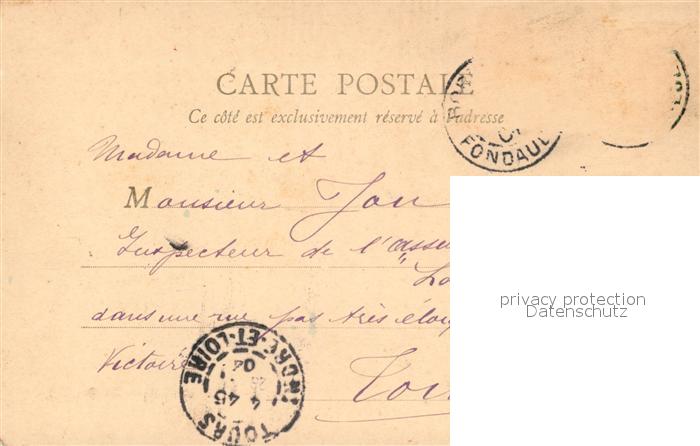 CARTE POSTALE
Ce côté est exclusivement réservé à l'adresse
FONDAU
Madame et
Monsieur
Inspecteur de l'
privacy protection
Datenschutz
dans une rue pas très
Victoire
TOURS INDRE-ET-LOIRE
4 45
04